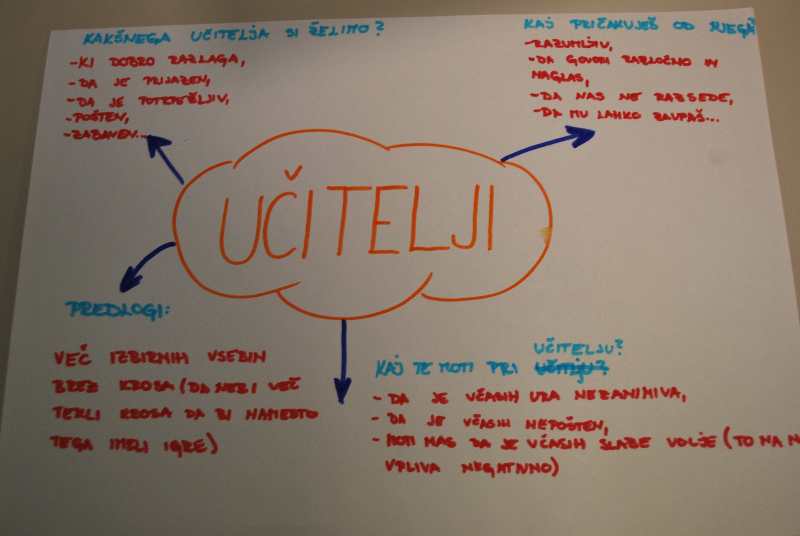 KAKŠNEGA UČITELJA SI ŽELIMO?
-KI DOBRO RAZLAGA,
-DA JE PRIJAZEN,
-DA JE POTRPEŽLJIV,
-POŠTEN,
-ZABAVEN...
KAJ PRIČAKUJEŠ OD NJEGA?
-RAZUMLJIV,
-DA GOVORI RAZLOČNO IN
NAGLAS,
-DA NAS NE RAZSEDE,
-DA MU LAHKO ZAUPAŠ...
UČITELJI
PREDLOGI:
VEČ IZBIRNIH VSEBIN
BREZ KROSA (DA NE BI VEČ
TEKLI KROSA DA BI NAMESTO
TEGA IMELI IGRE)
UČITELJU?
KAJ TE MOTI PRI
- DA JE VČASIH URA NEZANIMIVA,
- DA JE VČASIH NEPOŠTEN,
- MOTI NAS DA JE VČASIH SLABE VOLJE (TO NA N
VPLIVA NEGATIVNO)